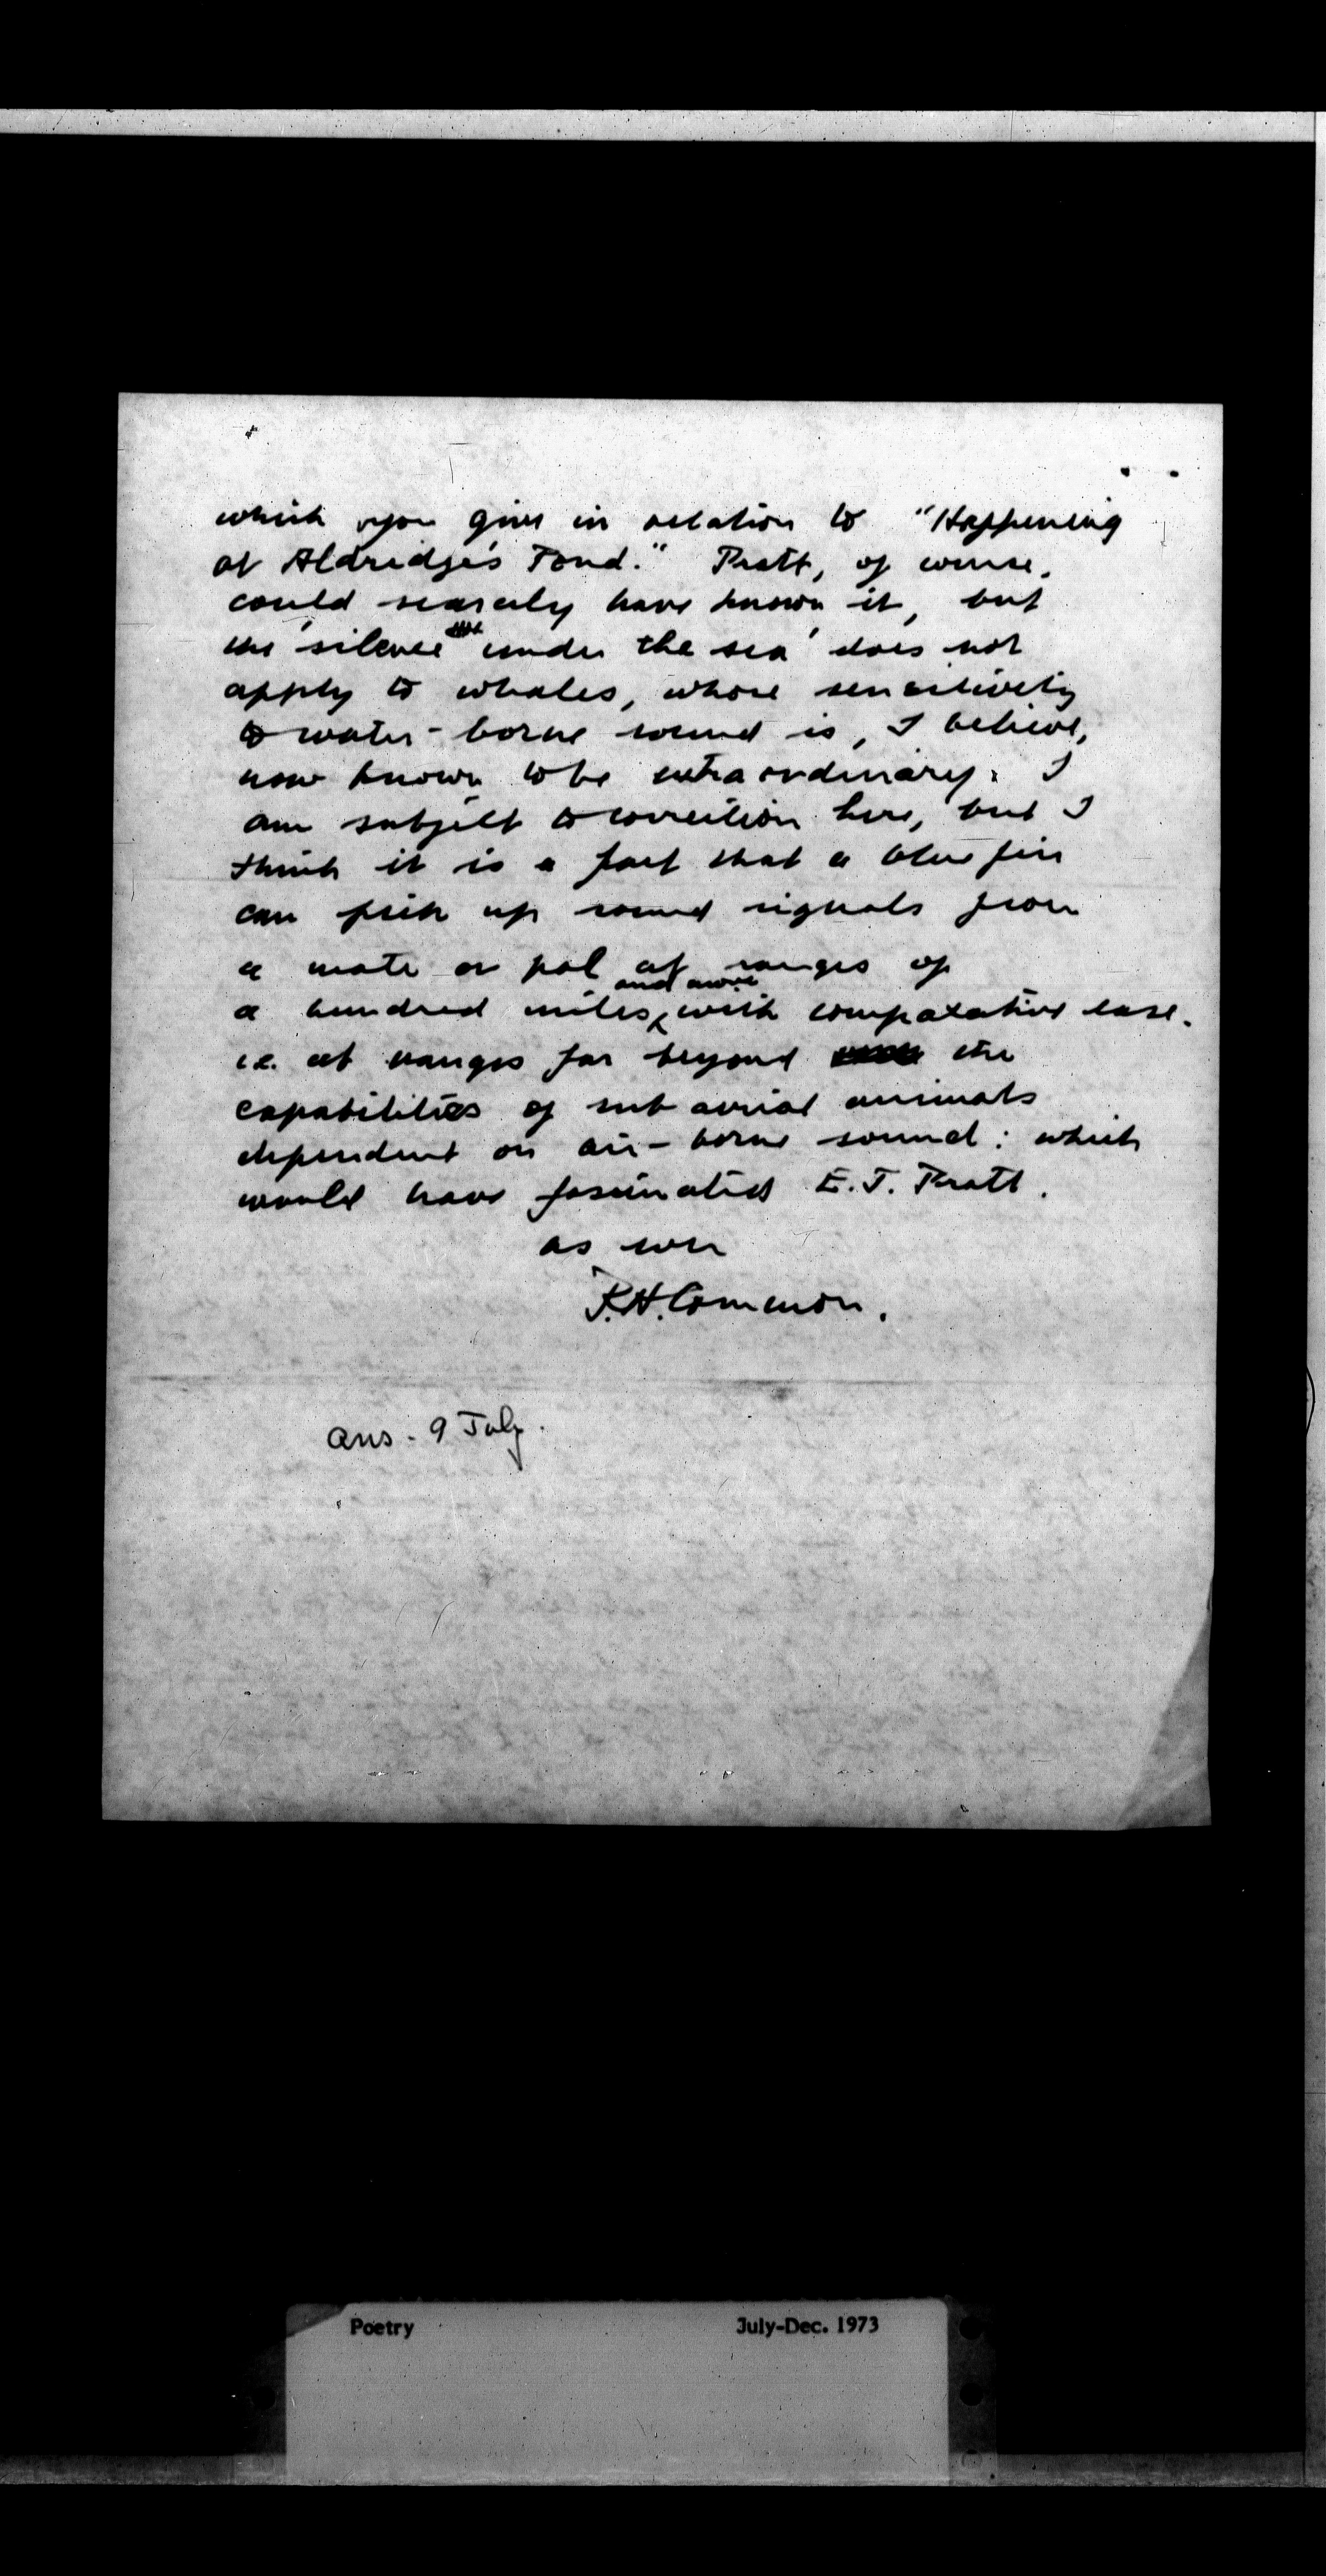 which you give in relation to "Happening
at Aldridge's Pond." Pratt, of course,
could scarcely have known it, but
the 'silence under the sea' does not
apply to whales, whose sensitivity
to water-borne sound is, I believe,
now known to be extraordinary. I
am subject to correction here, but I
think it is a fact that a blue fin
can pick up sound signals from
a mate or pal at ranges of
and more
a hundred miles, with comparative ease.
i.e. at ranges far beyond the
capabilities of sub aerial animals
dependent on air-borne sound: which
would have fascinated E.J. Pratt.
as ever
R.H. Common.
ans. 9 July.
Poetry July-Dec. 1973